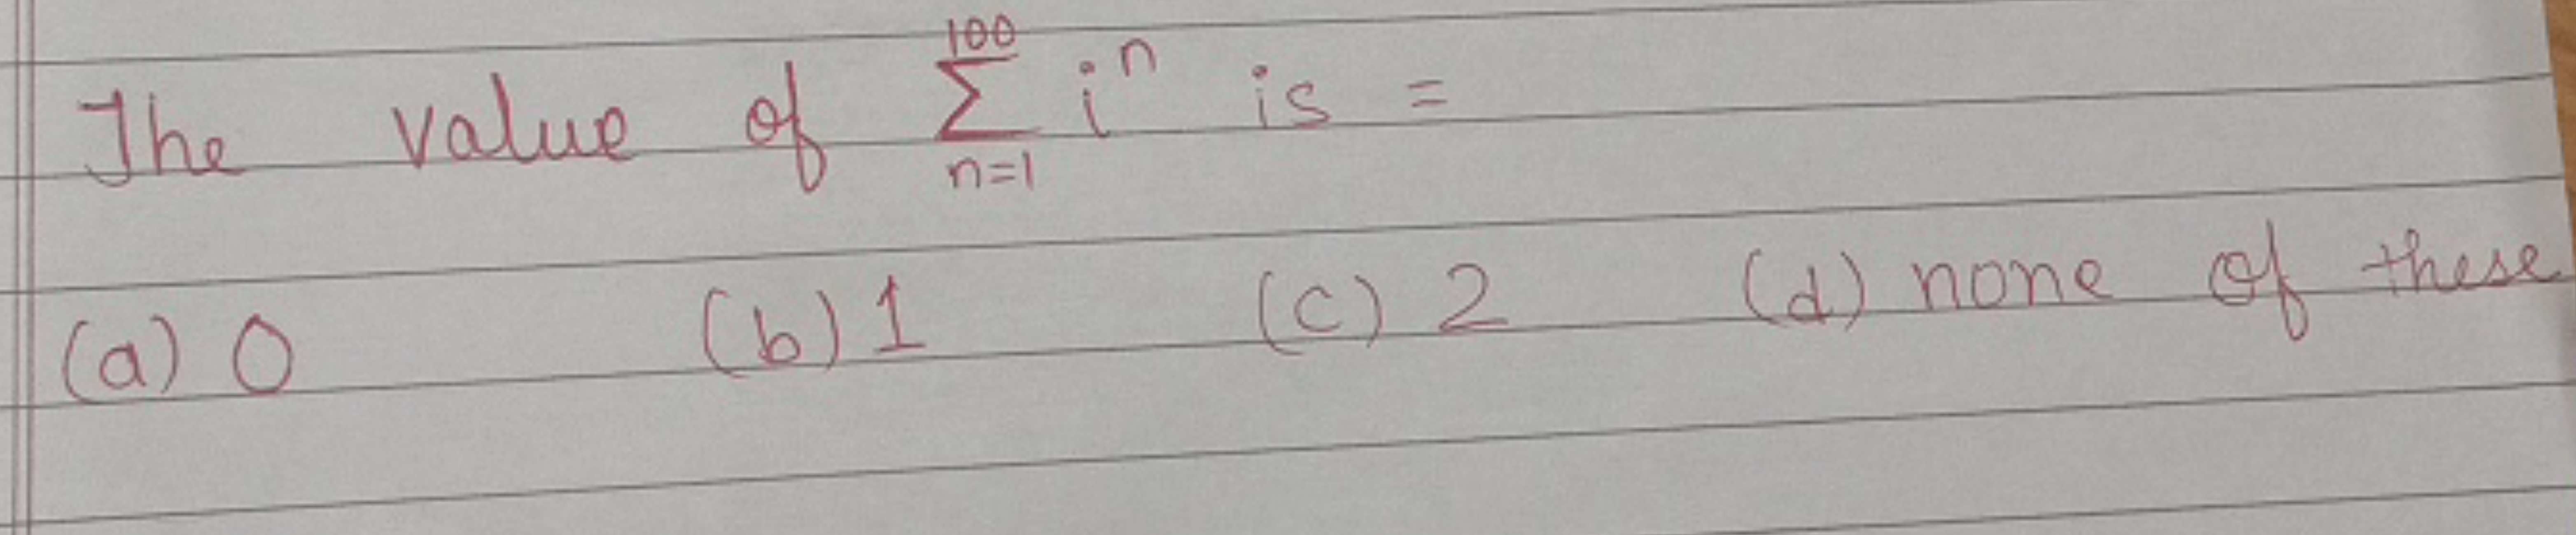 The value of $\sum_{n=1}^{100} i^n$ is =
(a) 0 (b) 1 (c) 2 (d) none of these